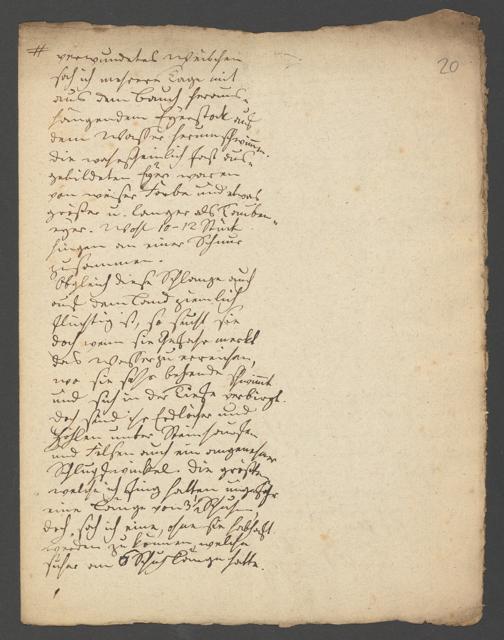 20
# verwundetes Weibchen
sah ich mehrere Tage mit
aus dem Bauch heraus-
hängendem Eyerstok auf
dem Wasser herum schwimmen.
die wahrscheinlich fast aus-
gebildeten Eyer waren
von weiser Farbe und etwas
größer u. länger als Tauben-
eyer. Wohl 10-12 Stück
hingen an einer Schnur
zusammen.
Obgleich diese Schlange auch
auf dem Land ziemlich
flüchtig ist, so sucht sie
doch wenn sie Gefahr merkt
das Wasser zu erreichen,
wo sie sehr behende schwimmt
und sich in der Tiefe verbirgt.
Doch sind ihr Erdlöcher und
Höhlen unter Steinhaufen
und Felsen auch ein angenehmer
Schlupfwinkel. Die größten
welche ich fing hatten ungefähr
eine Länge von 3½ Schuhen,
doch sah ich eine, ohne sie habhaft
werden zu können, welche
sicher an 5 Schuh Länge hatte.